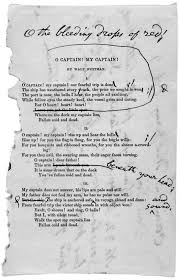 O the bleeding drops of red!
O CAPTAIN! MY CAPTAIN!
BY WALT WHITMAN.
I.
O CAPTAIN! my captain! our fearful trip is done;
The ship has weathered every rack, the prize we sought is won;
The port is near, the bells I hear, the people all exulting,
While follow eyes the steady keel, the vessel grim and daring:
But O heart! heart! heart!
Leave you not the little spot
Where on the deck my captain lies,
Fallen cold and dead.
II.
O captain! my captain! rise up and hear the bells;
Rise up! for you the flag is flung, for you the bugle trills:
For you bouquets and ribboned wreaths, for you the shores a-crowding:
For you they call, the swaying mass, their eager faces turning.
O captain! dear father!
This arm
beneath your head;
It is some dream that on the deck
You've fallen cold and dead.
My captain does not answer, his lips are pale and still;
My father does not feel my arm, he has no pulse nor will.
the ship is anchored safe, its voyage closed and done:
and sound
From fearful trip the victor ship comes in with object won!
Exult, O shores! and ring, O bells!
But I, with silent tread,
Walk the spot my captain lies,
Fallen cold and dead.